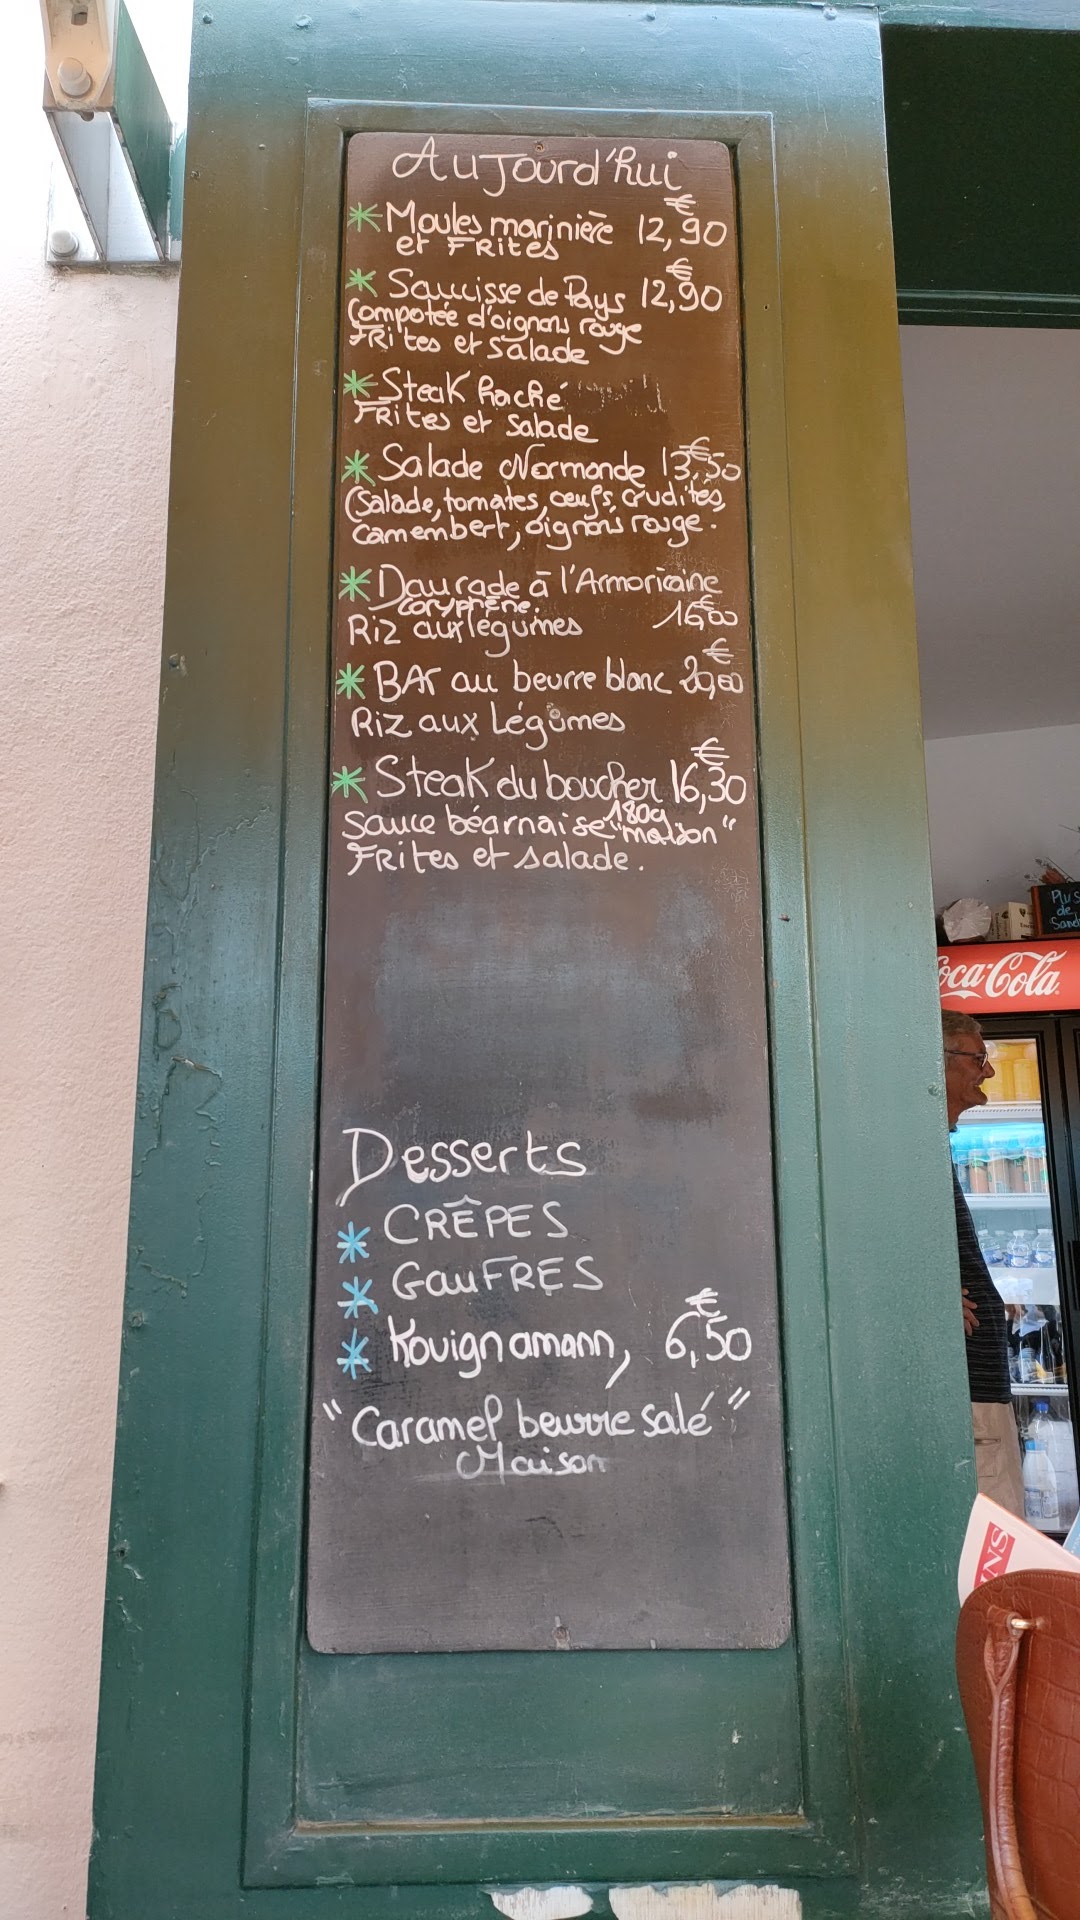 Aujourd'hui
* Moules marinière 12,90 €
et Frites
* Saucisse de Pays 12,90 €
Compotée d'oignons rouge
Frites et salade
* Steak haché
Frites et salade
* Salade Normande 13,50 €
(Salade, tomates, œufs, crudités,
camembert, oignons rouge.
* Daurade à l'Armoricaine
coryphène.
Riz aux légumes 16,00 €
* BAr au beurre blanc 20,00 €
Riz aux Légumes
* Steak du boucher 16,30 €
180g
sauce béarnaise "maison"
Frites et salade.
Desserts
* CRÊPES
* GauFRES
* Kouignamann, 6,50 €
"Caramel beurre salé"
Maison
Plus
de
Coca-Cola